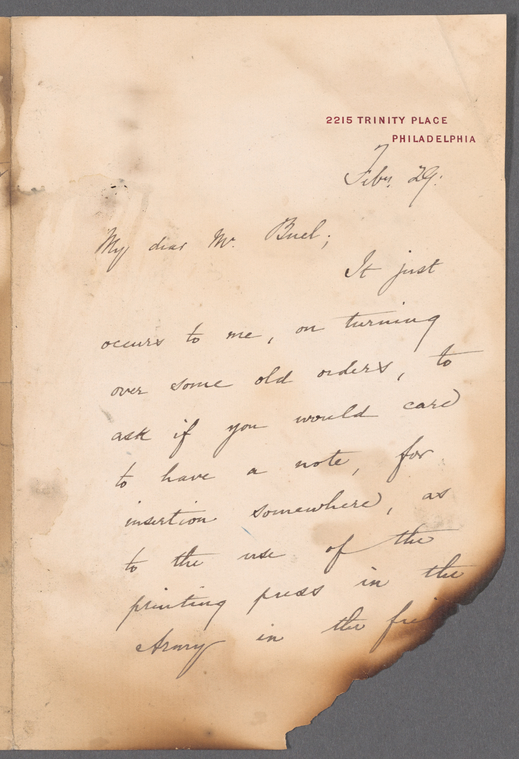 2215 TRINITY PLACE
PHILADELPHIA
Feby. 29.
My dear Mr. Buel;
It just
occurs to me, on turning
over some old orders, to
ask if you would care
to have a note, for
insertion somewhere, as
to the use of the
printing press in the
Army in the